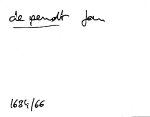 de pendt Jan
1684/66